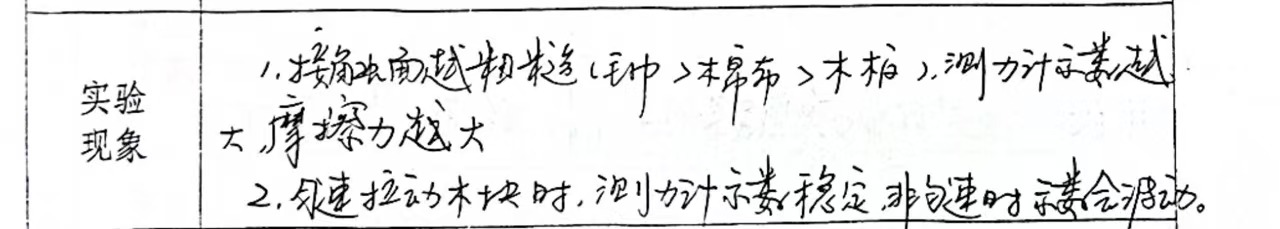 实验
现象
1.接触面越粗糙(毛巾>棉布>木板),测力计示数越
大,摩擦力越大
2.匀速拉动木块时,测力计示数稳定,非匀速时示数会波动。